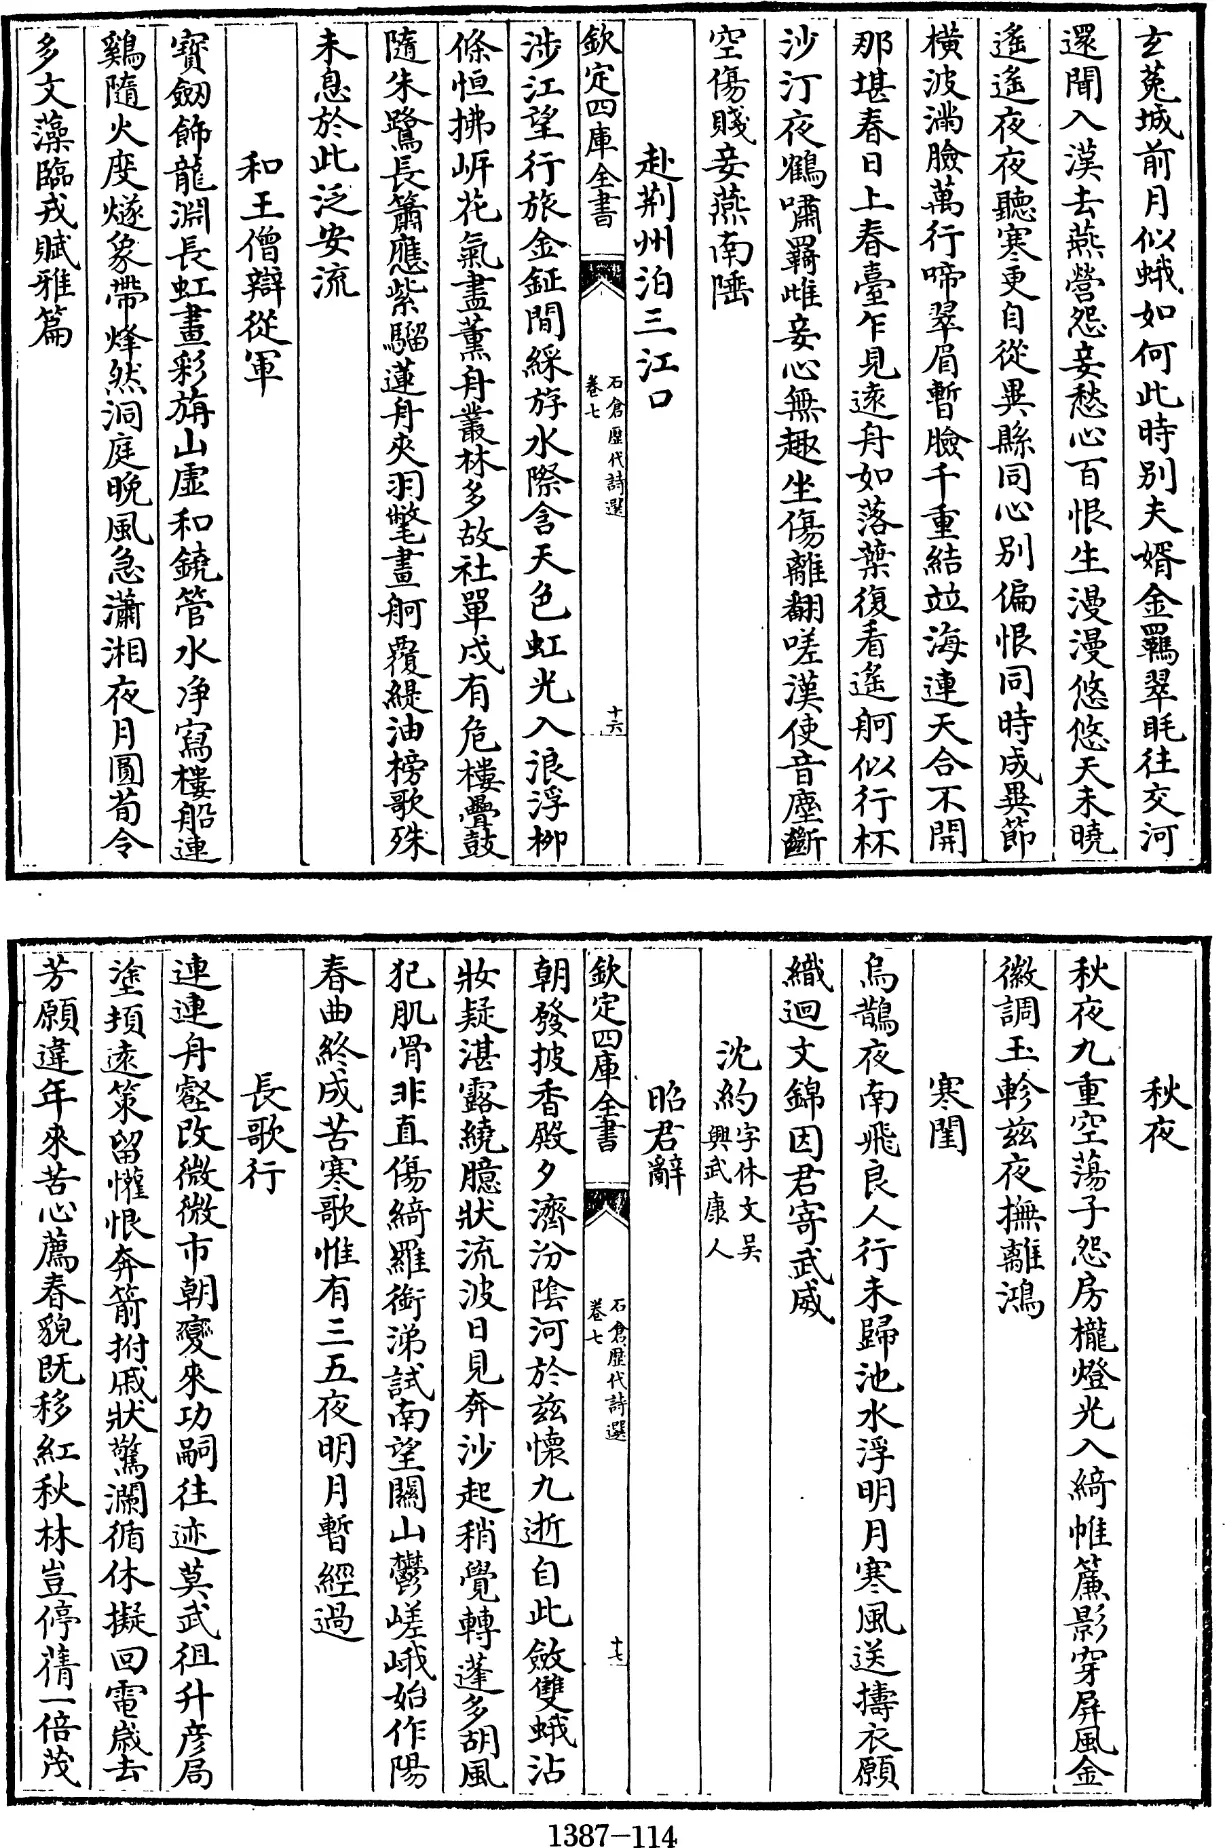 玄菟城前月似蛾如何此時別夫婿金羈翠眊往交河
還聞入漢去燕營怨妾愁心百恨生漫漫悠悠天未曉
遙遙夜夜聽寒更自從異縣同心別偏恨同時成異節
橫波滿臉萬行啼翠眉暫臉千重結竝海連天合不開
那堪春日上春臺乍見遠舟如落葉復看遙舸似行杯
沙汀夜鶴嘯羇雌妾心無趣坐傷離翻嗟漢使音塵斷
空傷賤妾燕南陲
赴荆州泊三江口
欽定四庫全書
石倉歷代詩選
卷七
十六
涉江望行旅金鉦間綵斿水際含天色虹光入浪浮柳
條恒拂岍花氣盡薰舟叢林多故社單戍有危樓疊鼓
隨朱鷺長簫應紫騮蓮舟夾羽氅畫舸覆緹油榜歌殊
未息於此泛安流
和王僧辯從軍
寶劒飾龍淵長虹畫彩旃山虛和鐃管水净寫樓船連
鷄隨火度燧象帶烽然洞庭晩風急瀟湘夜月圓荀令
多文藻臨戎賦雅篇
秋夜
秋夜九重空蕩子怨房櫳燈光入綺帷簾影穿屏風金
徽調玉軫兹夜撫離鴻
寒閨
烏鵲夜南飛良人行未歸池水浮明月寒風送擣衣願
織迴文錦因君寄武威
沈約字休文吳
興武康人
昭君辭
欽定四庫全書
石倉歷代詩選
卷七
十七
朝發披香殿夕濟汾陰河於兹懷九逝自此斂雙蛾沾
妝疑湛露繞臆狀流波日見奔沙起稍覺轉蓬多胡風
犯肌骨非直傷綺羅銜涕試南望關山鬱嵯峨始作陽
春曲終成苦寒歌惟有三五夜明月暫經過
長歌行
連連舟壑改微微市朝變來功嗣往迹莫武徂升彦局
塗頓遠策留懽恨奔箭拊戚狀驚瀾循休擬回電歲去
芳願違年來苦心薦春貌既移紅秋林豈停蒨一倍茂
1387–114